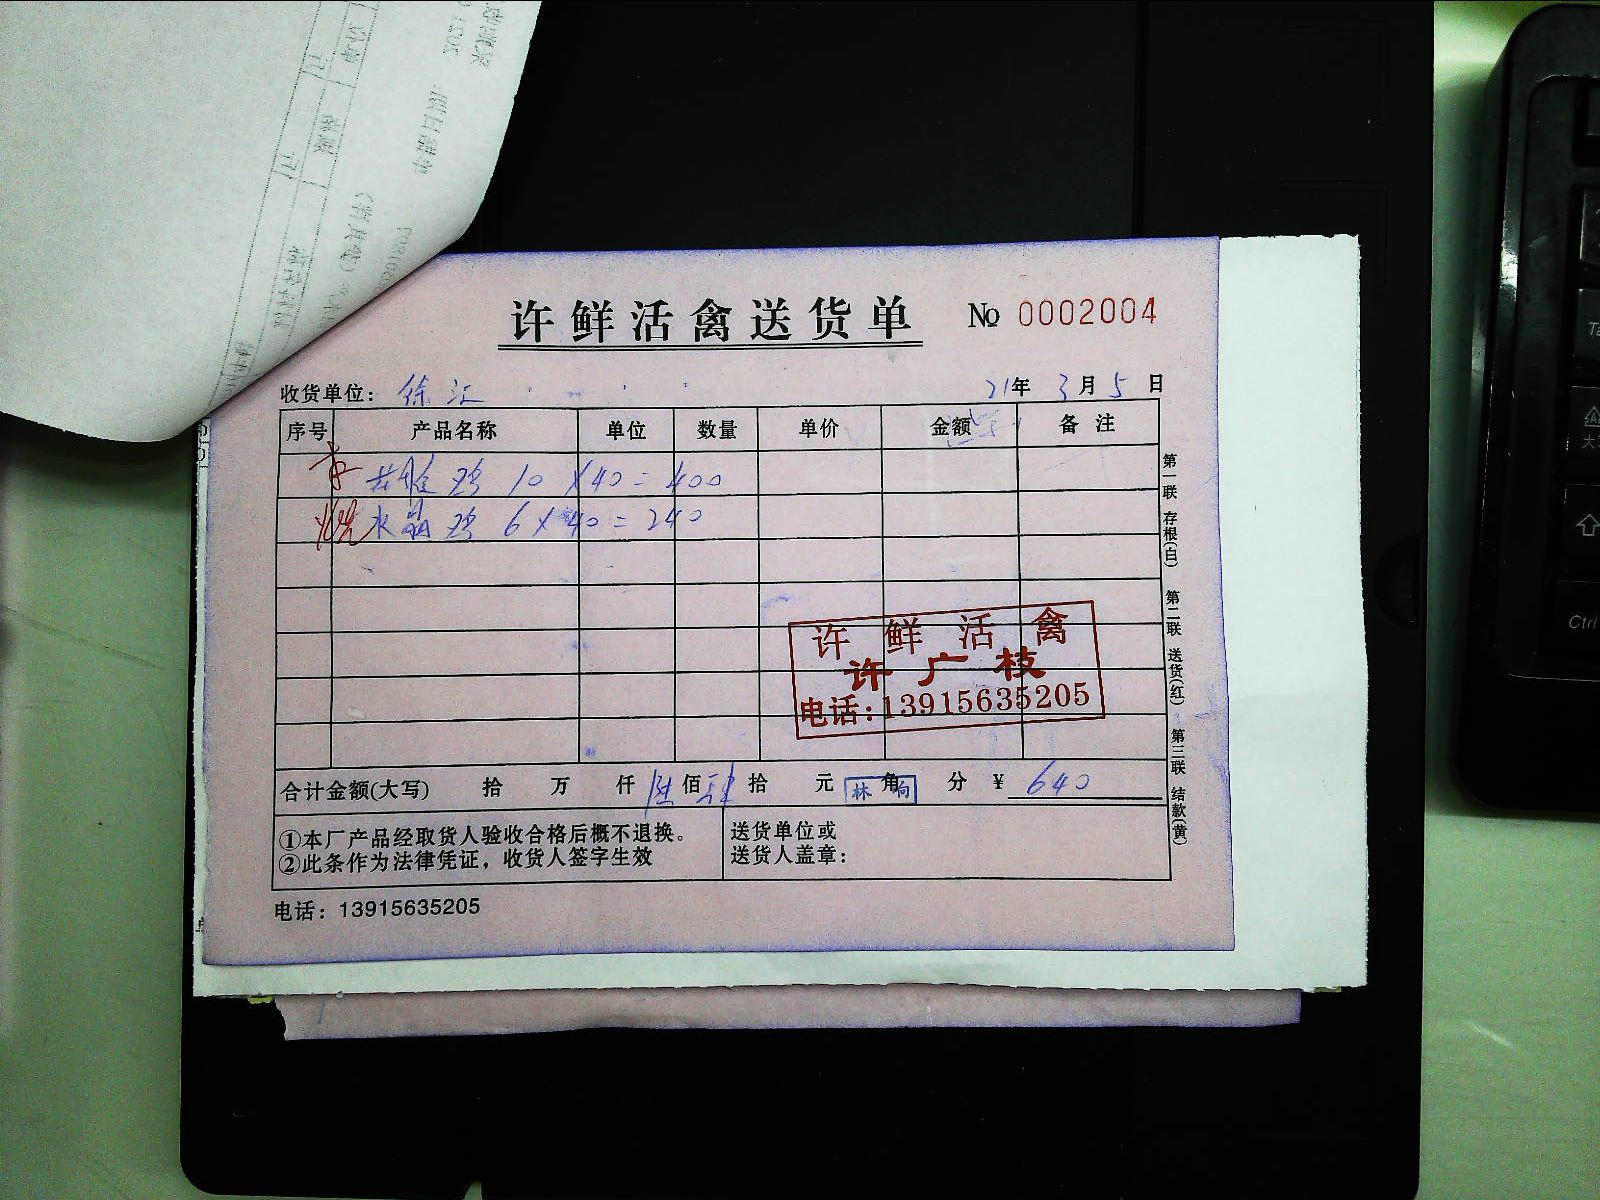 许鲜活禽送货单
№ 0002004
收货单位: 徐汇
21年 3月5日
序号 产品名称 单位 数量 单价 金额 备注
鸡 10 × 40 = 400
水晶鸡 6 × 40 = 240
许鲜活禽
许广枝
电话:13915635205
合计金额(大写) 拾 万 仟 陆 佰 肆 拾 元 角 分 ¥ 640
①本厂产品经取货人验收合格后概不退换。
②此条作为法律凭证，收货人签字生效
送货单位或
送货人盖章:
电话: 13915635205
第一联 存根(白)
第二联 送货(红)
第三联 结款(黄)
Ctrl